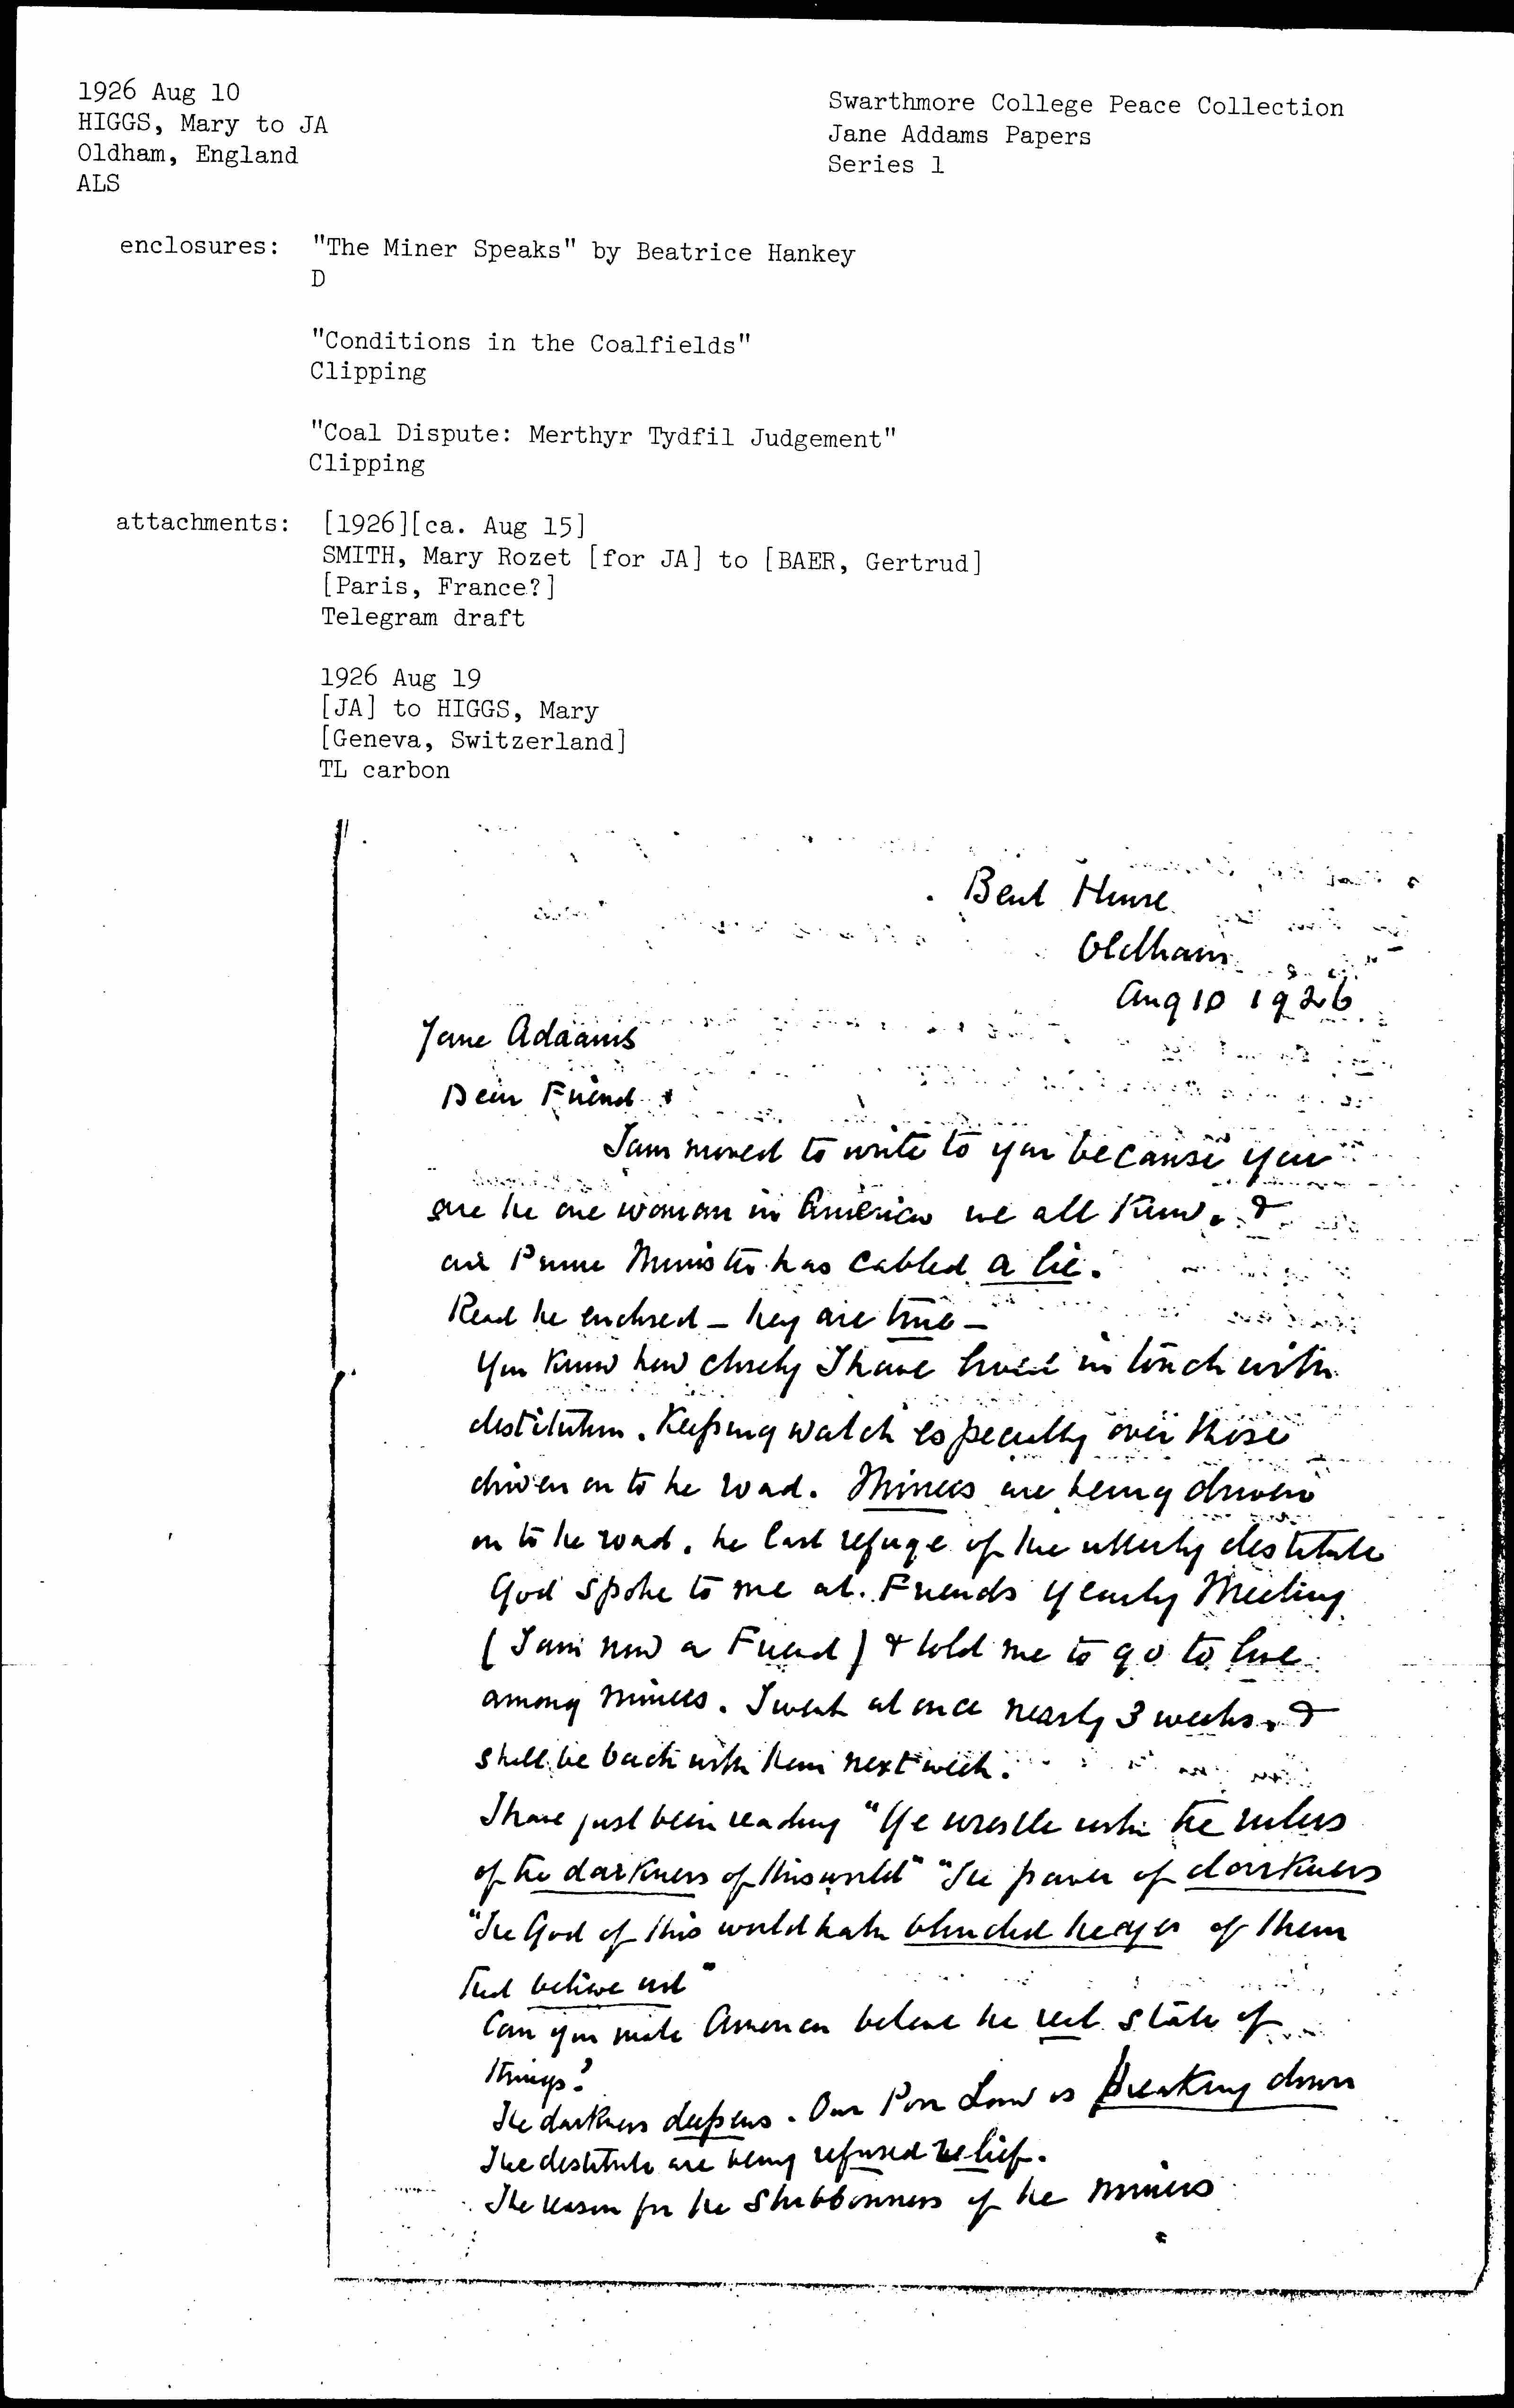 1926 Aug 10
HIGGS, Mary to JA
Oldham, England
ALS
Swarthmore College Peace Collection
Jane Addams Papers
Series 1
enclosures: "The Miner Speaks" by Beatrice Hankey
D
"Conditions in the Coalfields"
Clipping
"Coal Dispute: Merthyr Tydfil Judgement"
Clipping
attachments: [1926][ca. Aug 15]
SMITH, Mary Rozet [for JA] to [BAER, Gertrud]
[Paris, France?]
Telegram draft
1926 Aug 19
[JA] to HIGGS, Mary
[Geneva, Switzerland]
TL carbon
Bent House
Oldham
Aug 10 1926
Jane Adaams
Dear Friend
I am moved to write to you because you
are the one woman in America we all know. &
our Prime Minister has cabled a lie.
Read the enclosed - they are true -
You know how closely I have lived in touch with
destitution. Keeping watch especially over those
driven on to the road. Miners are being driven
on to the road. the last refuge of the utterly destitute
God spoke to me at. Friends yearly Meeting
(I am now a Friend) & told me to go to live
among miners. I went at once nearly 3 weeks. &
shall be back with them next week.
I have just been reading "Ye wrestle with the rulers
of the darkness of this world" "The power of darkness
"The God of this world hath blinded the eyes of them
that believe not"
Can you make America believe the real state of
things?
The darkness deepens. Our Poor Law is breaking down
The destitute are being refused relief.
The reason for the stubbornness of the miners